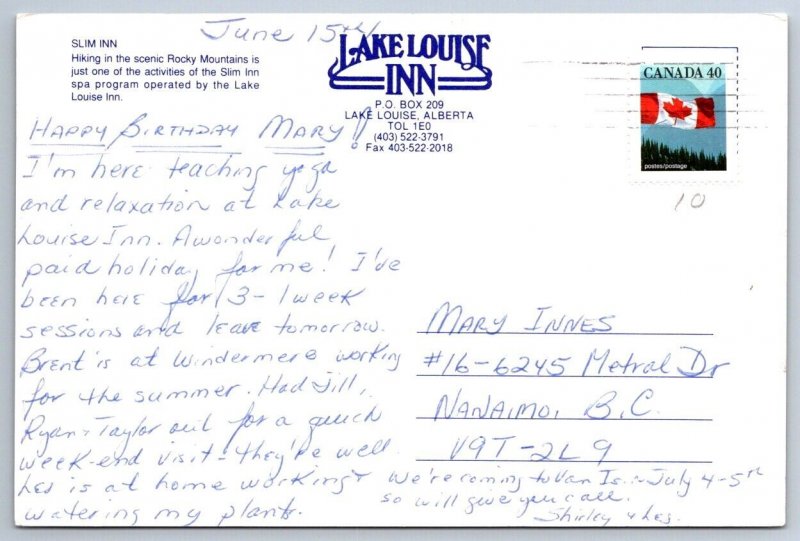 June 15th/
SLIM INN
Hiking in the scenic Rocky Mountains is
just one of the activities of the Slim Inn
spa program operated by the Lake
Louise Inn.
LAKE LOUISE
INN
P.O. BOX 209
LAKE LOUISE, ALBERTA
TOL 1E0
(403) 522-3791
Fax 403-522-2018
CANADA 40
postes/postage
10
HAPPY BIRTHDAY MARY!
I'm here teaching yoga
and relaxation at Lake
Louise Inn. A wonderful,
paid holiday for me! I've
been here for 3-1 week
sessions and leave tomorrow.
Brent is at Windermere working
for the summer. Had Jill,
Ryan + Taylor out for a quick
week-end visit - they're well.
Les is at home working +
watering my plants.
We're coming to Van Is. - July 4-5th
so will give you call.
Shirley & Les.
MARY INNES
#16-6245 Metral Dr
NANAIMO, B.C.
V9T-2L9